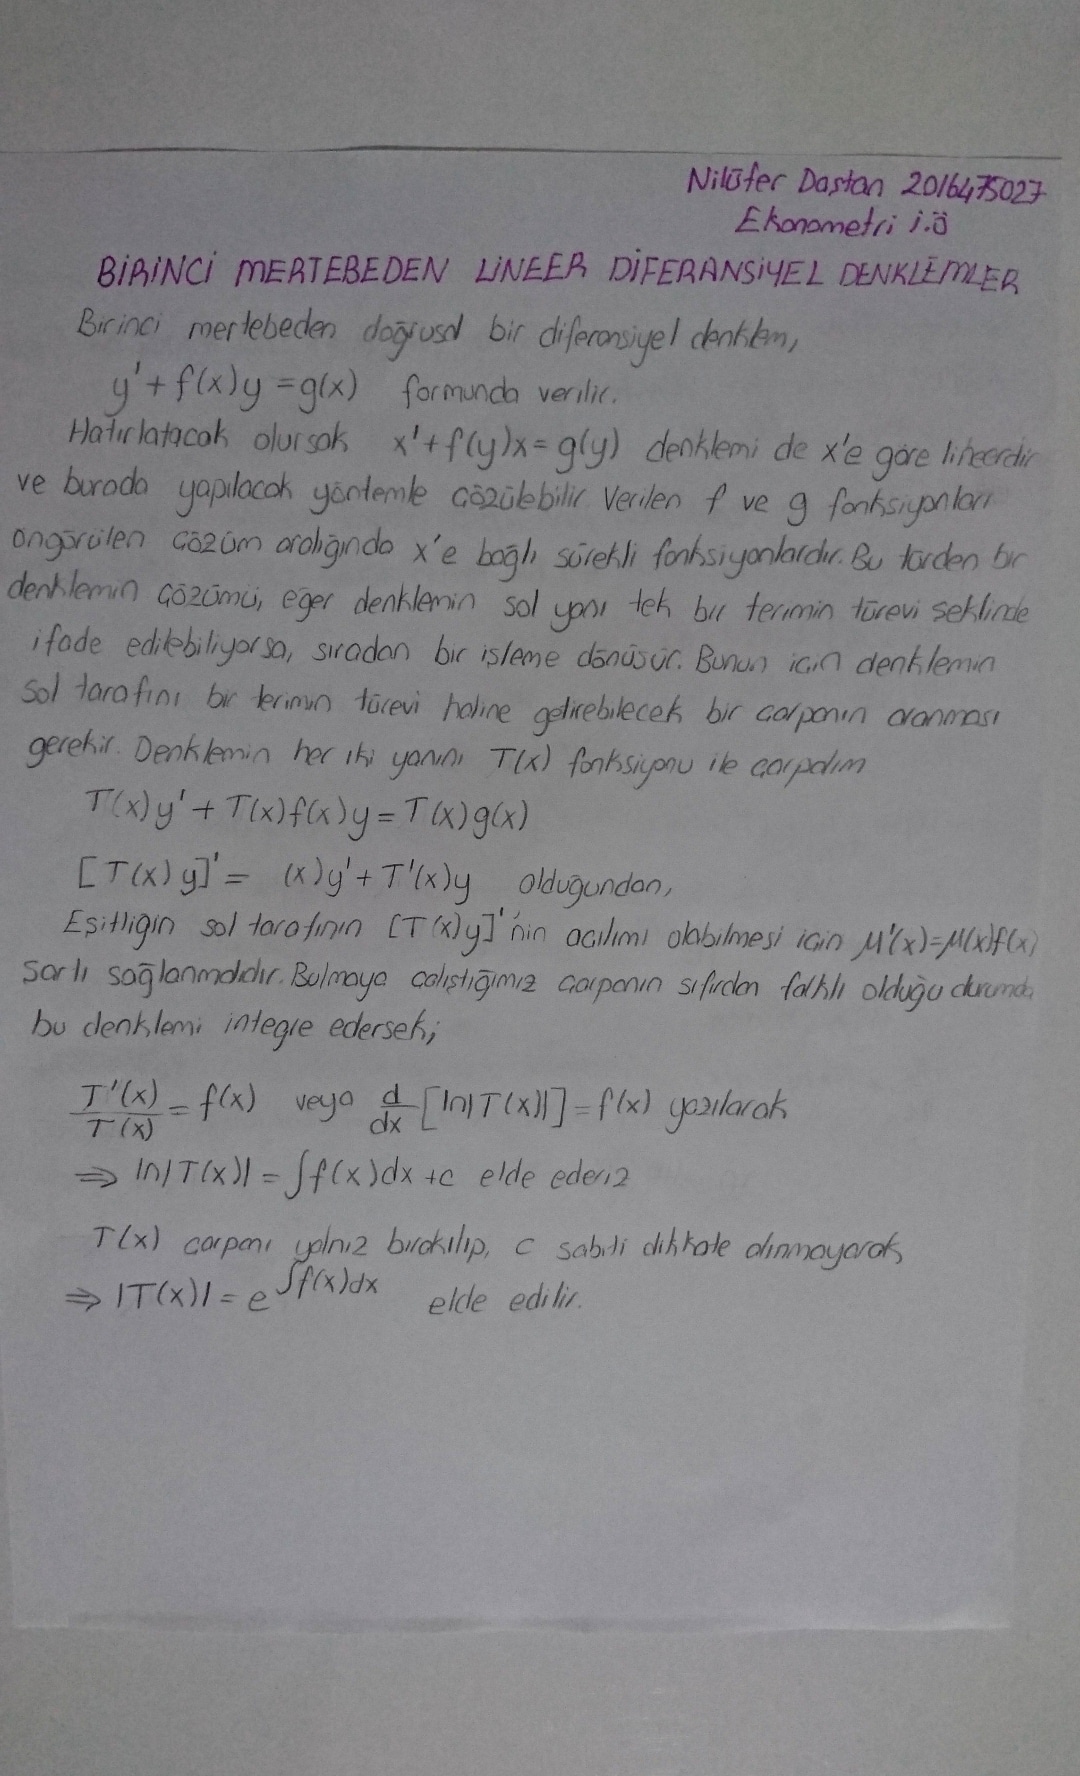 Nilüfer Dastan 2016475027
Ekonometri i.ö
BİRİNCİ MERTEBEDEN LİNEER DİFERANSİYEL DENKLEMLER
Birinci mertebeden doğrusal bir diferansiyel denklem,
y' + f(x)y = g(x) formunda verilir.
Hatırlatacak olursak x' + f(y)x = g(y) denklemi de x'e göre lineerdir
ve burada yapılacak yöntemle çözülebilir. Verilen f ve g fonksiyonları
öngörülen çözüm aralığında x'e bağlı sürekli fonksiyonlardır. Bu türden bir
denklemin çözümü, eğer denklemin sol yanı tek bir terimin türevi şeklinde
ifade edilebiliyorsa, sıradan bir işleme dönüşür. Bunun için denklemin
sol tarafını bir terimin türevi haline getirebilecek bir çarpanın aranması
gerekir. Denklemin her iki yanını T(x) fonksiyonu ile çarpalım
T(x)y' + T(x)f(x)y = T(x)g(x)
[T(x)y]' = (x)y' + T'(x)y olduğundan,
Eşitliğin sol tarafının [T(x)y]'nin açılımı olabilmesi için μ'(x)=μ(x)f(x)
şartı sağlanmalıdır. Bulmaya çalıştığımız çarpanın sıfırdan falklı olduğu durumda
bu denklemi integre edersek;
T'(x)/T(x) = f(x) veya d/dx [ln|T(x)|] = f(x) yazılarak
⇒ ln|T(x)| = ∫f(x)dx + c elde ederiz
T(x) çarpanı yalnız bırakılıp, c sabiti dikkate alınmayarak,
⇒ |T(x)| = e^∫f(x)dx elde edilir.